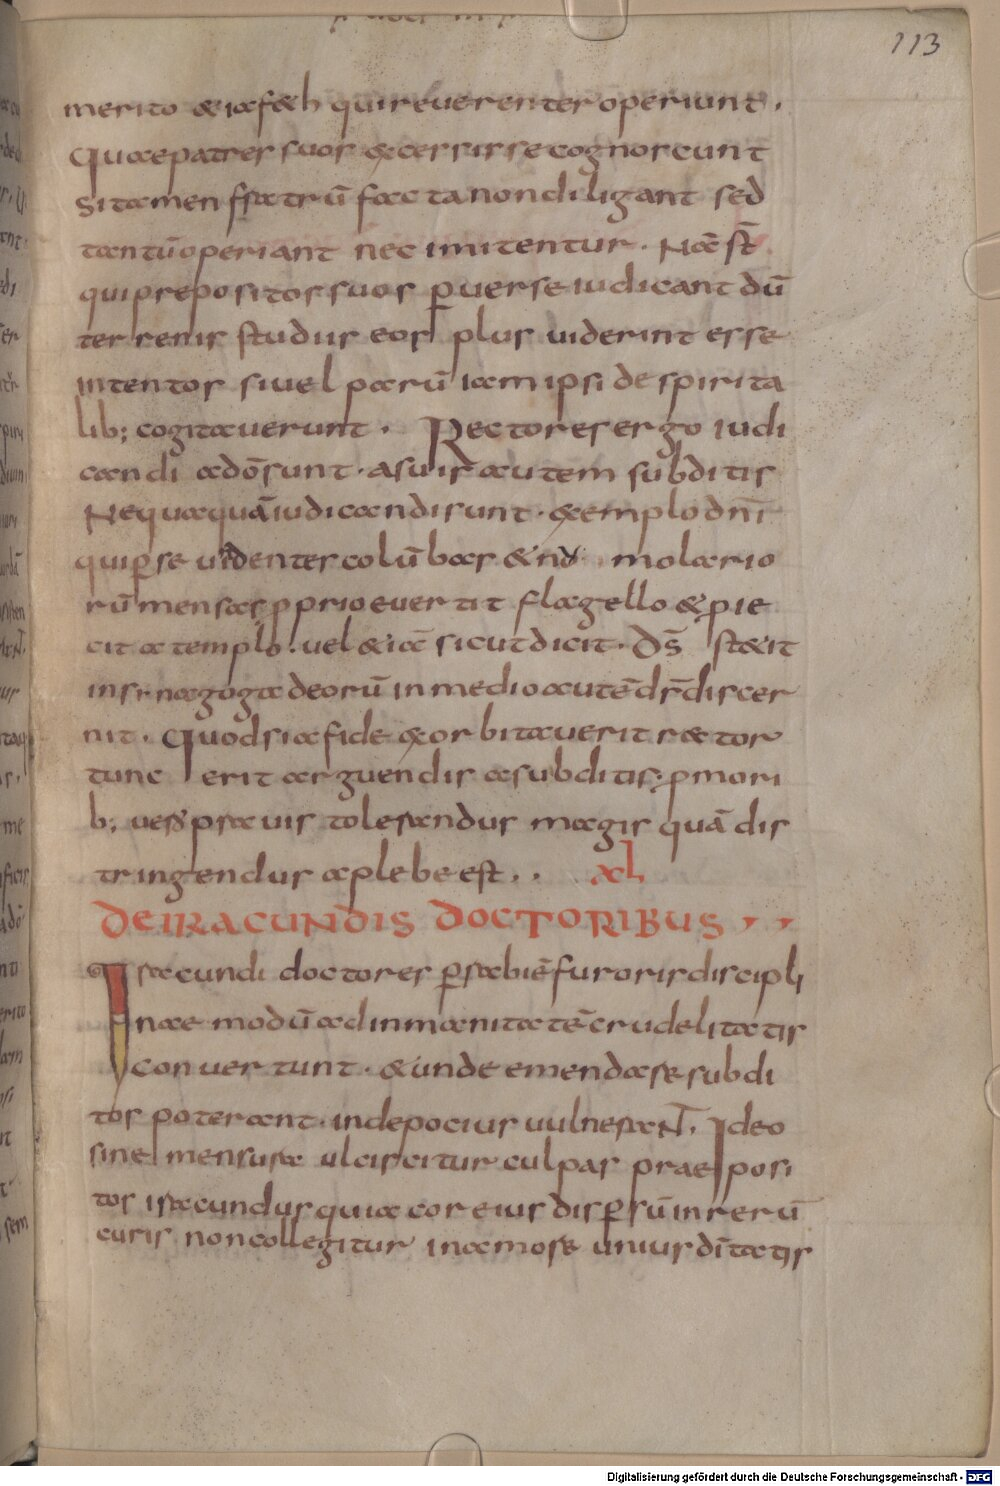 113
merito & iaf&h qui reuerenter operiunt.
Quae patres suos excessisse cognoscunt
Si tamen fratrū facta non diligant sed
tantū operiant nec imitentur. Nā s̄t
qui prepositos suos ꝑuerse iudicant dū
terrenis studiis eos plus uiderint esse
intentos siuel parū iam ipsi de spirita
lib; cogitauerunt. Rectores ergo iudi
candi a dō sunt. a suis autem subditis
Nequaquā iudicandi sunt. exemplo dn̄i
qui ꝑ se uidentes colūbas & molario
rū mensas ꝓprio euertit flagello & ꝓie
cit a templo. uel & iā sicut dicit. Ds̄ st&it
in sinagoga deorū in medio autē ds̄ discer
nit. Quod si a fide exorbitauerit rector
tunc erit arguendis a subditis. ꝓ mori
b; uero prauis tolerandus magis quā dis
tringendus a plebe est.. xl
DE IRACUNDIS DOCTORIBUS
Iracundi doctores ꝑ rabiē furoris discipli
nae modū ad inmanitatē crudelitatis
conuertunt. & unde emendare subdi
tos poterant. inde pocius uulneraNT. Ideo
sine mensura ulciscitur culpas praeposi
tos iracundus quia cor eius disꝑsū in rerū
curis non collegitur in amore unius dītatis
Digitalisierung gefördert durch die Deutsche Forschungsgemeinschaft - DFG